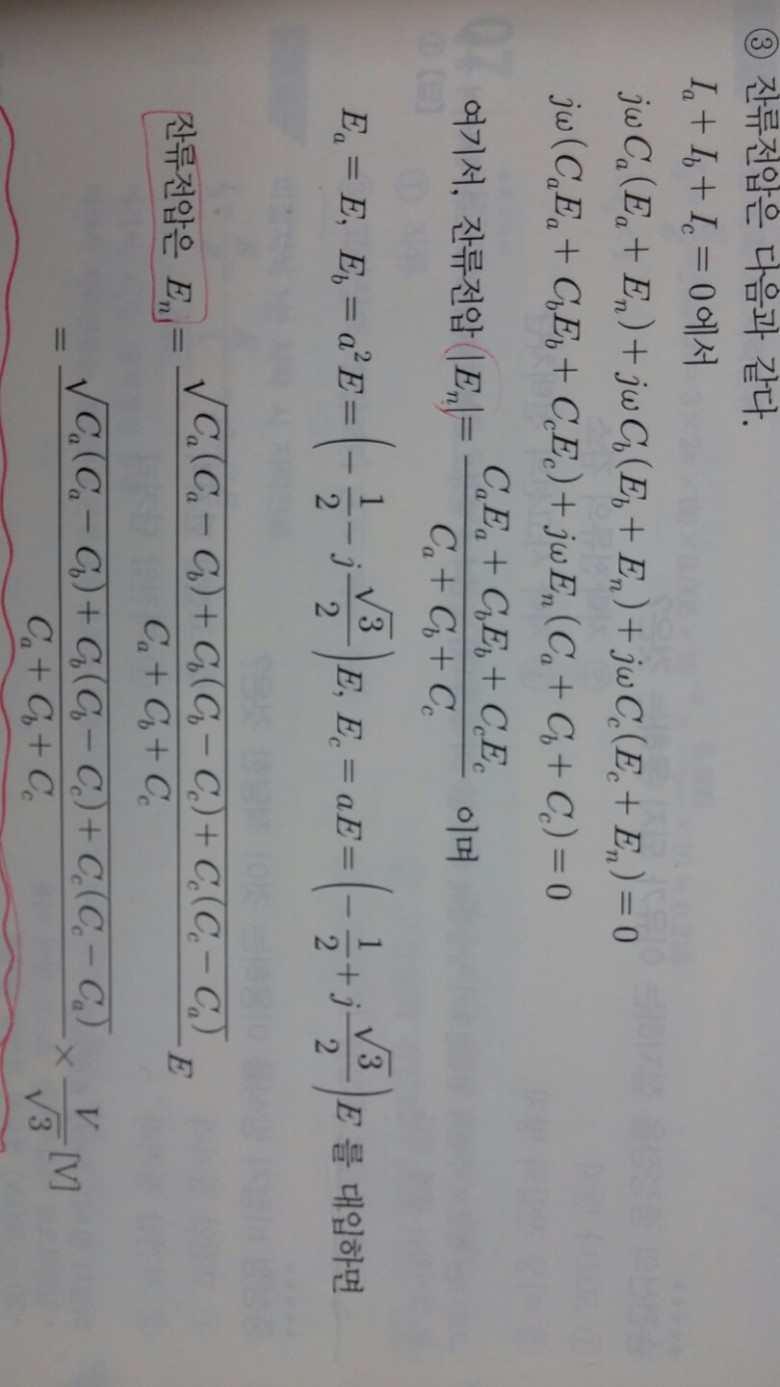 ③ 잔류전압은 다음과 같다.
I_a + I_b + I_c = 0에서
jωC_a(E_a + E_n) + jωC_b(E_b + E_n) + jωC_c(E_c + E_n) = 0
jω(C_aE_a + C_bE_b + C_cE_c) + jωE_n(C_a + C_b + C_c) = 0
여기서, 잔류전압 |E_n| = (C_aE_a + C_bE_b + C_cE_c) / (C_a + C_b + C_c) 이며
E_a = E, E_b = a²E = (-1/2 - j√3/2)E, E_c = aE = (-1/2 + j√3/2)E 를 대입하면
잔류전압은 E_n = √(C_a(C_a - C_b) + C_b(C_b - C_c) + C_c(C_c - C_a)) / (C_a + C_b + C_c) E
= √(C_a(C_a - C_b) + C_b(C_b - C_c) + C_c(C_c - C_a)) / (C_a + C_b + C_c) × V/√3 [V]